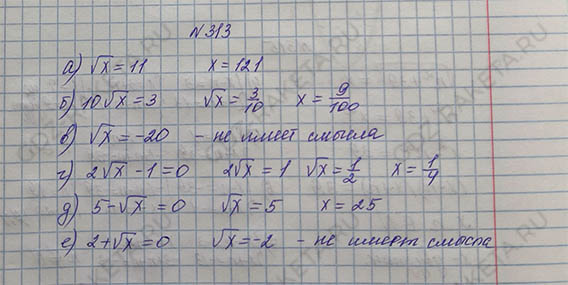 N 313
а) √x = 11 x = 121
б) 10√x = 3 √x = 3/10 x = 9/100
в) √x = -20 - не имеет смысла
г) 2√x - 1 = 0 2√x = 1 √x = 1/2 x = 1/4
д) 5 - √x = 0 √x = 5 x = 25
е) 2 + √x = 0 √x = -2 - не имеет смысла